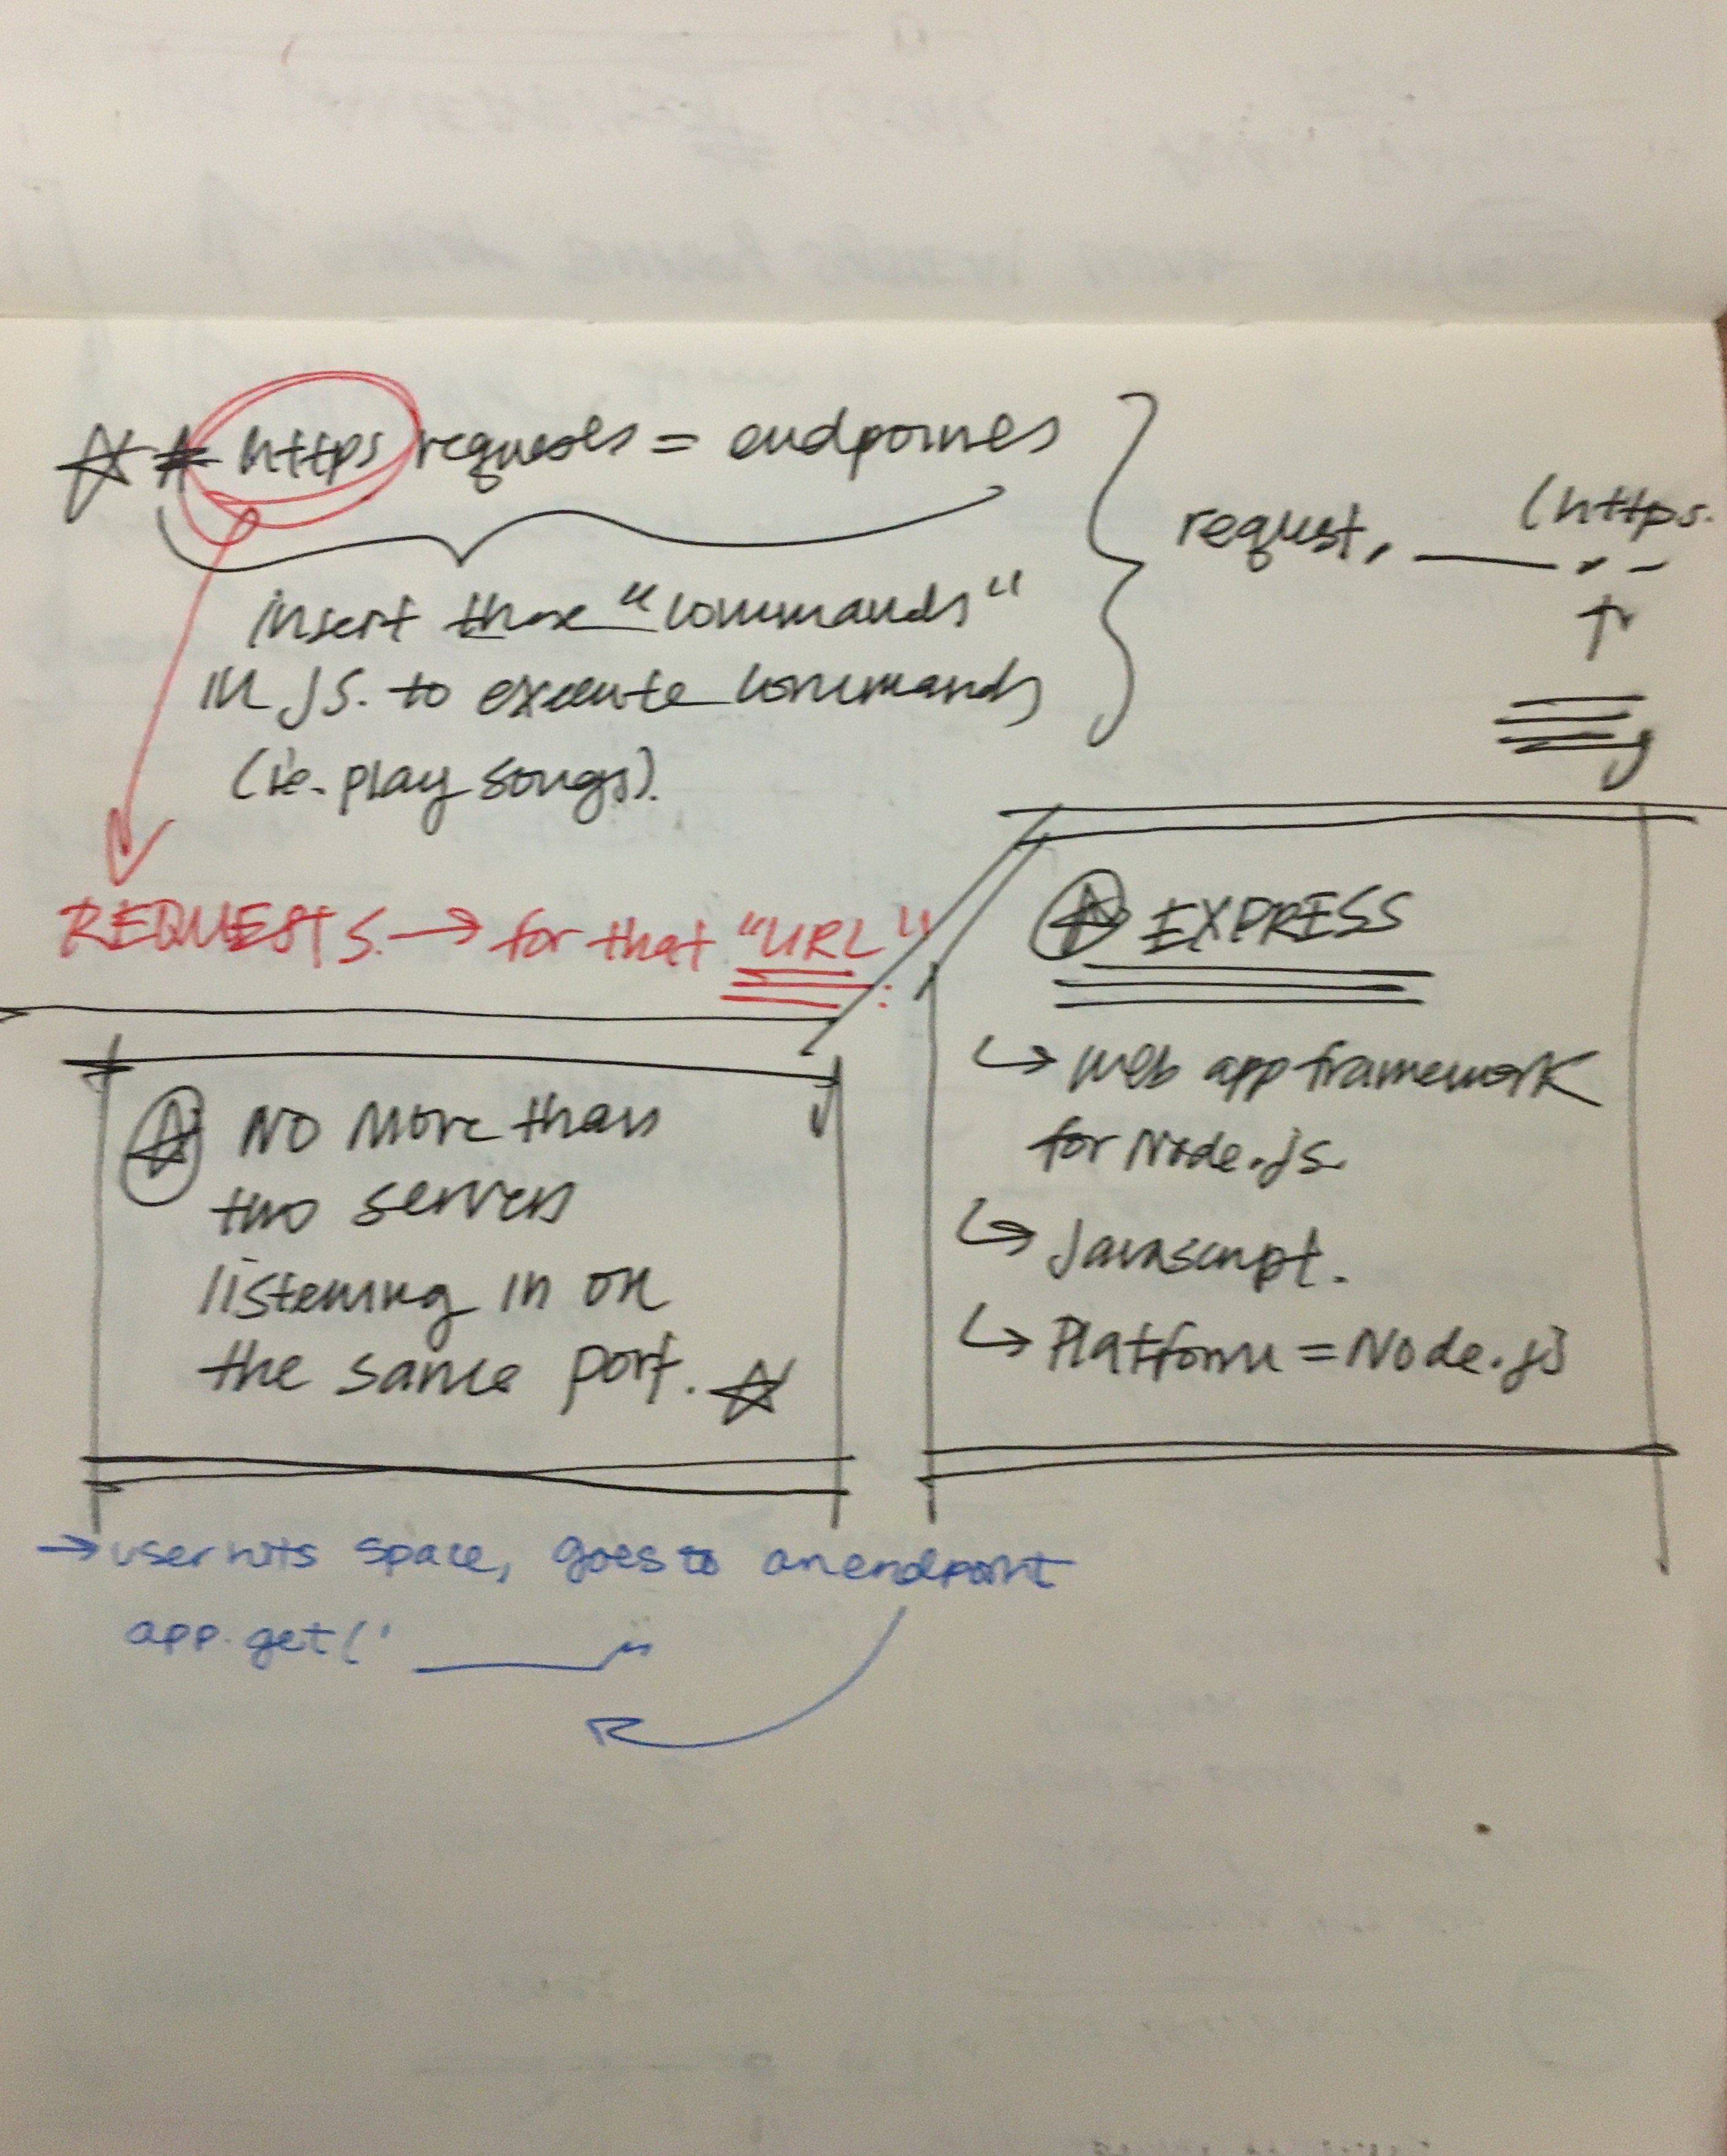 https requests = endpoints
request. (https.
insert those "commands"
in JS. to execute commands
(ie. play songs).
REQUESTS. → for that "URL"
NO More than
two servers
listening in on
the same port.
EXPRESS
↳ web app framework
for Node.js.
↳ Javascript.
↳ Platform = Node.js
→ user hits space, goes to an endpoint
app.get('